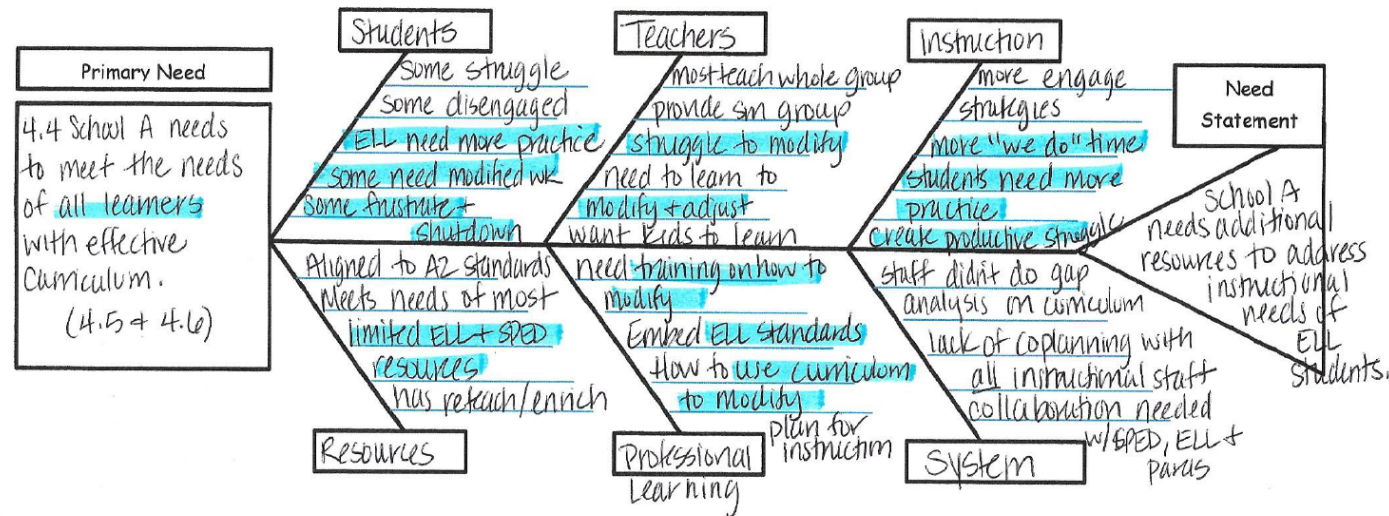 Primary Need
4.4 School A needs
to meet the needs
of all learners
with effective
Curriculum.
(4.5 & 4.6)
Students
Some struggle
Some disengaged
ELL need more practice
some need modified wk
some frustrate +
shutdown
Teachers
most teach whole group
provide sm group
struggle to modify
need to learn to
modify + adjust
want kids to learn
Instruction
more engage
strategies
more "we do" time
students need more
practice
create productive struggle
Need
Statement
School A
needs additional
resources to address
instructional
needs of
ELL
students.
Aligned to AZ standards
Meets needs of most
limited ELL + SPED
resources
has reteach/enrich
Resources
need training on how to
modify
Embed ELL standards
How to use curriculum
to modify
plan for
instruction
Professional
Learning
staff didn't do gap
analysis on curriculum
lack of coplanning with
all instructional staff
collaboration needed
w/SPED, ELL +
paras
System